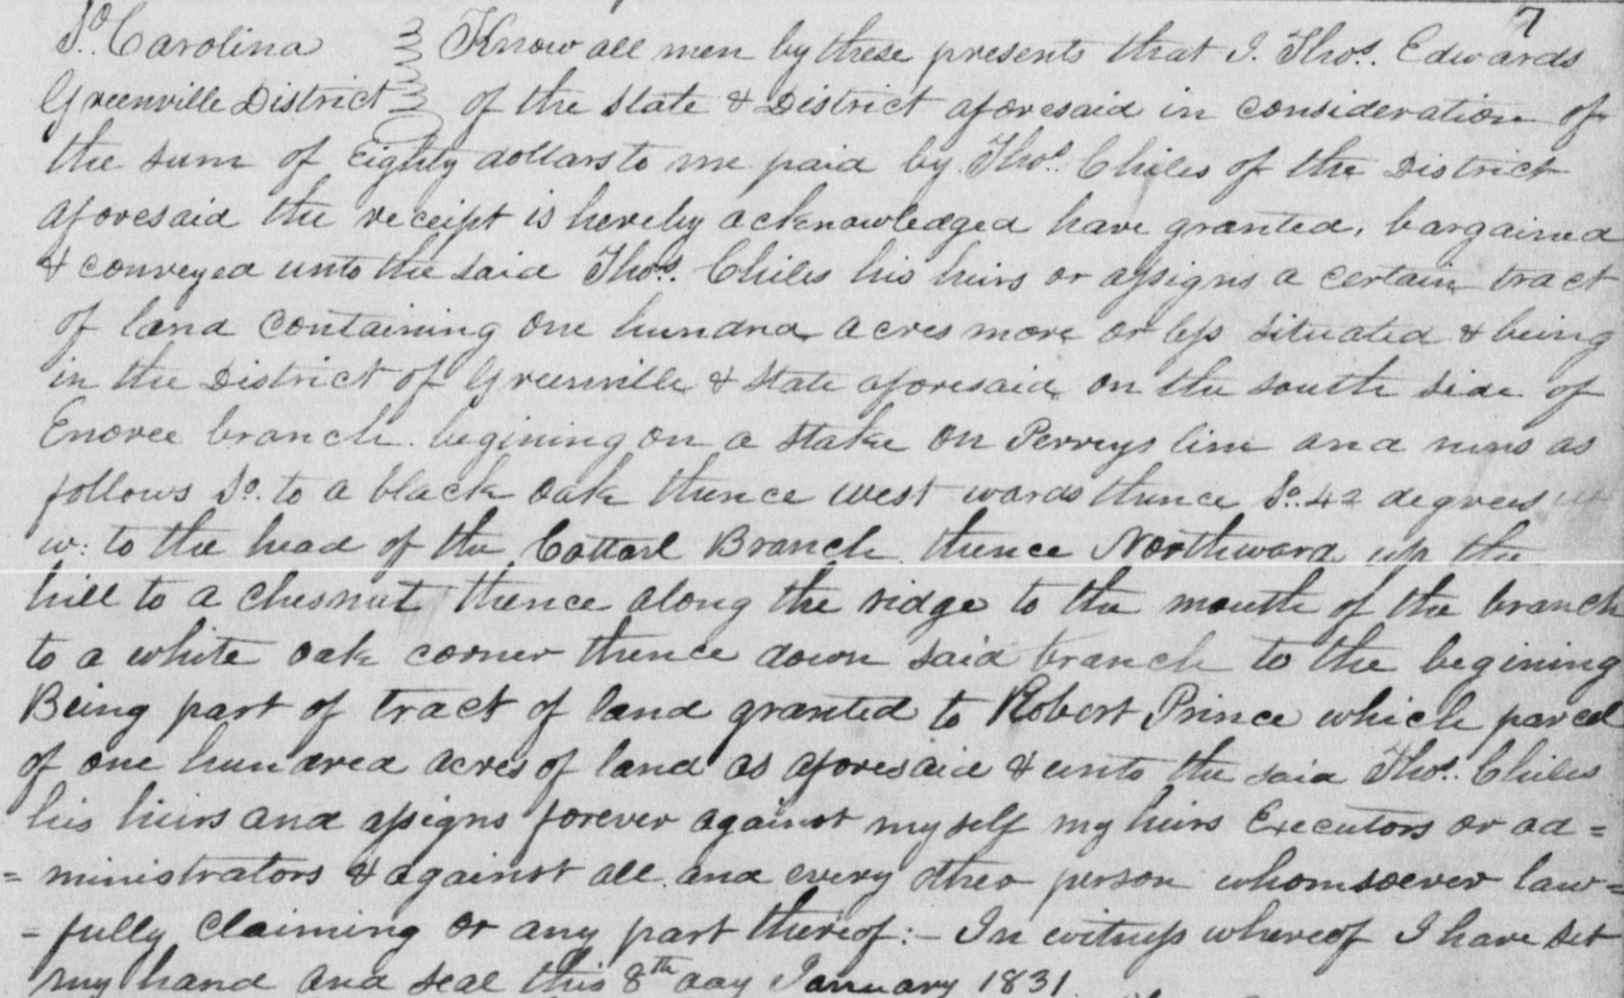 7
So. Carolina Know all men by these presents that I. Thos. Edwards
Greenville District of the State & District aforesaid in consideration of
the sum of Eighty dollars to me paid by Thos. Chiles of the District
aforesaid the receipt is hereby acknowledged have granted, bargained
& conveyed unto the said Thos. Chiles his heirs or assigns a certain tract
of land containing one hundrd acres more or less situated & being
in the District of Greenville & State aforesaid on the south side of
Enoree branch. begining on a stake on Perreys line and runs as
follows So. to a black oak thence west wards thence So. 42 degrees
w: to the head of the Branch thence Northward up the
hill to a chesnut thence along the ridge to the mouth of the branch
to a white oak corner thence down said branch to the begining
Being part of tract of land granted to Robert Prince which parcel
of one hundred acres of land as aforesaid & unto the said Thos. Chiles
his heirs and assigns forever against myself my heirs Executors or ad=
= ministrators & against all and every other person whomsoever law=
= fully claiming or any part thereof:- In witness whereof I have set
my hand and seal this 8th day January 1831